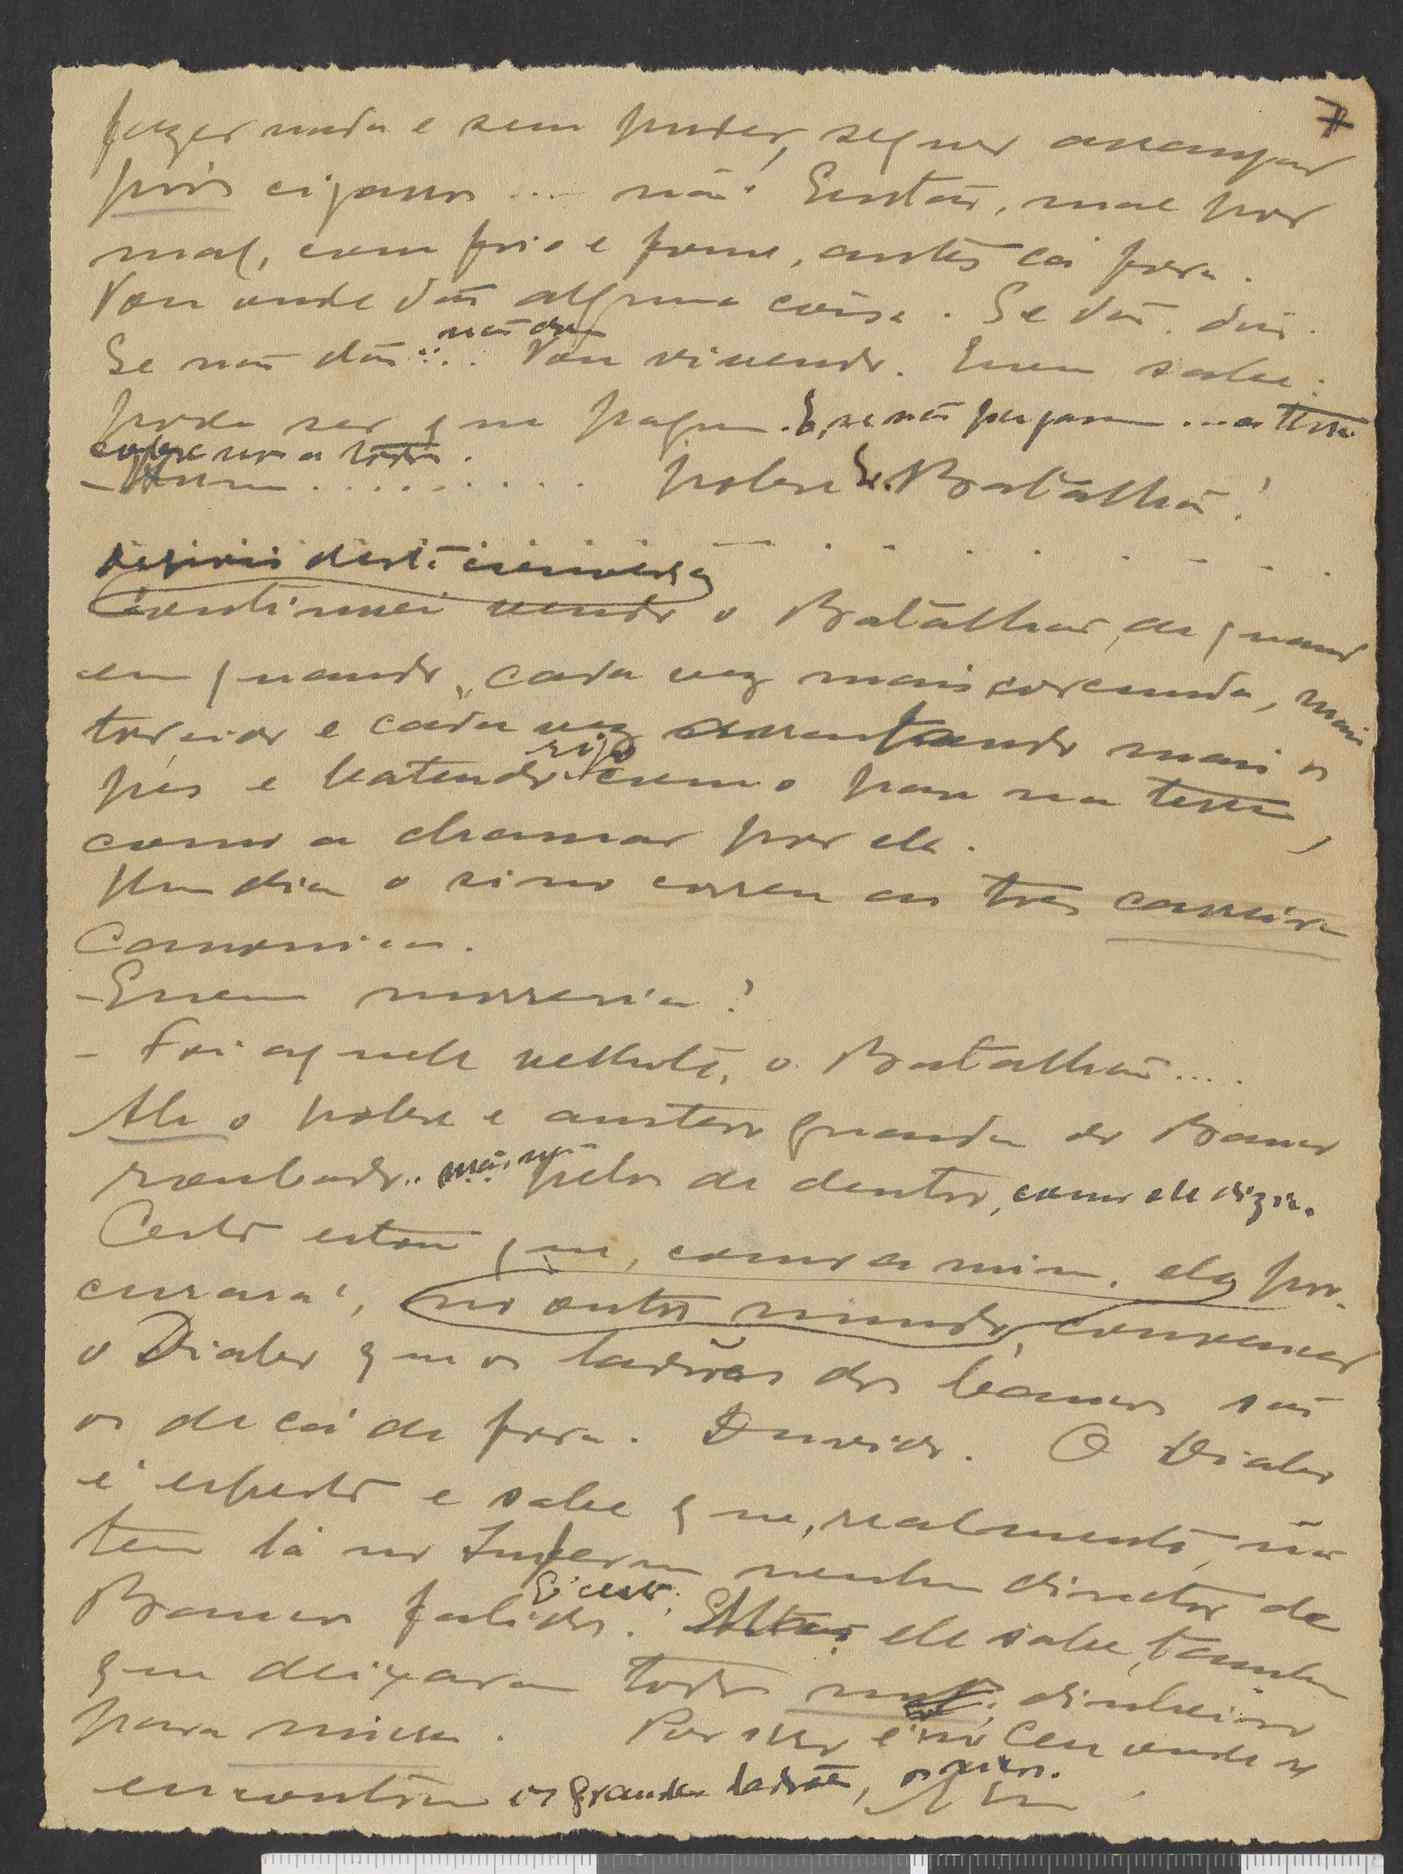 7
fazer nada e sem puder, sequer arranjar
pró's cigarros ... não! Então, mal por
mal, com frio e fome, antes cá fora.
Vou onde dão alguma coisa. Se dão, dão.
Se não dão ... não dão. Vou vivendo. Quem sabe:
pode ser que pague. E, se não pagarem ... a terra
come-nos a todos.
- Hum ......... pobre Sr. Batalhão!
depois desta conversa
Continuei vendo o Batalhão, de quando
em quando, cada vez mais corcunda, mais
torcido e cada vez arrastando mais os
pés e batendo rijo com o pau na terra,
como a chamar por ela.
Um dia o sino correu as três carreira
canonica.
- Quem morreria?
- Foi aquele velhote, o Batalhão....
Ah o pobre e austero guarda do Banco
roubado.. pelos de dentro, como ele dizia.
Certo estou que, como a mim, ele pro-
curará, no outro mundo, convencer
o Diabo que os ladrões dos bancos são
os de cá de fora. Duvido. O Diabo
é esperto e sabe que, realmente, não
tem lá no Inferno nenhum director de
Bancos falidos. É certo: ele sabe, tambem
que deixaram todo dinheiro
para missas. Por isso é no Ceu onde se
encontram os grandes ladrões,